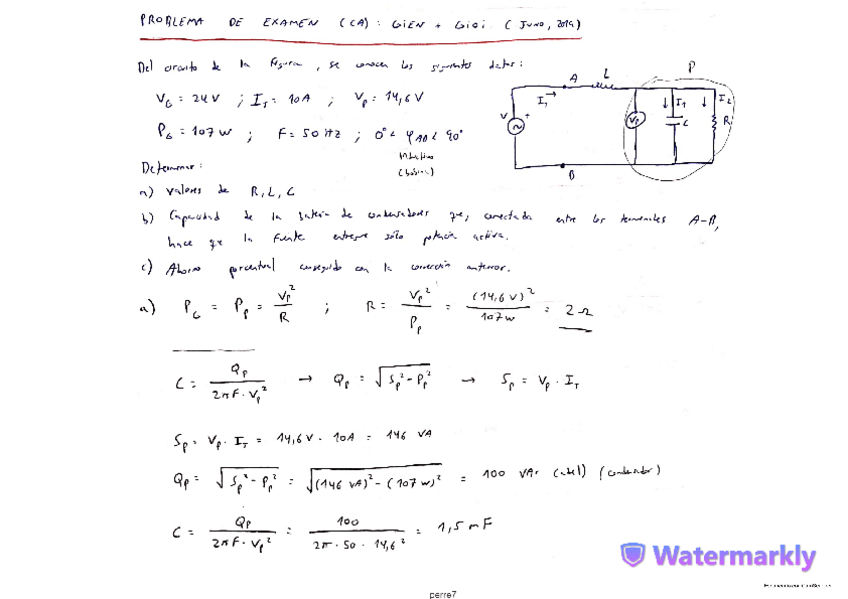 PROBLEMA DE EXAMEN (CA): GIEN + GIOI (JUNIO, 2019)
Del circuito de la figura, se conocen los siguientes datos:
V_G = 24V ; I_T = 10A ; V_P = 14,6 V
P_G = 107 W ; F = 50 Hz ; 0° < φ_AB < 90°
Inductivo
(bobina)
A L P
V + I_T → V_P ↓ I_1 C ↓ I_2 R
B
Determinar:
a) Valores de R, L, C
b) Capacidad de la batería de condensadores que, conectada entre los terminales A-B,
hace que la fuente entregue sólo potencia activa.
c) Ahorro porcentual conseguido con la corrección anterior.
a) P_G = P_P = V_P² / R ; R = V_P² / P_P = (14,6 V)² / 107 W = 2 Ω
C = Q_P / 2πF·V_P² → Q_P = √(S_P² - P_P²) → S_P = V_P · I_T
S_P = V_P · I_T = 14,6 V · 10A = 146 VA
Q_P = √(S_P² - P_P²) = √((146 VA)² - (107 W)²) = 100 VAr (condensador)
C = Q_P / 2πF·V_P² = 100 / 2π·50·14,6² = 1,5 mF
Watermarkly
perre7